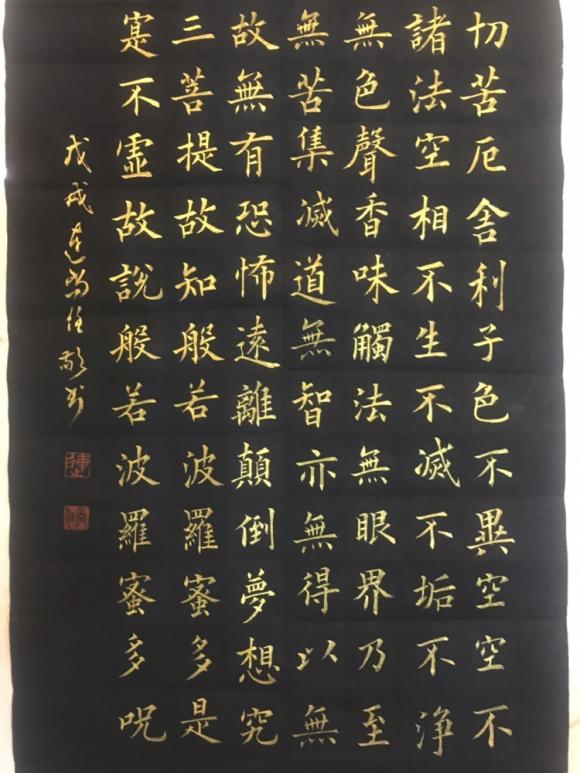 切苦厄舍利子色不異空空不
諸法空相不生不滅不垢不淨
無色聲香味觸法無眼界乃至
無苦集滅道無智亦無得以無
故無有恐怖遠離顛倒夢想究
三菩提故知般若波羅蜜多是
寔不虛故說般若波羅蜜多呪
戊戌敬书